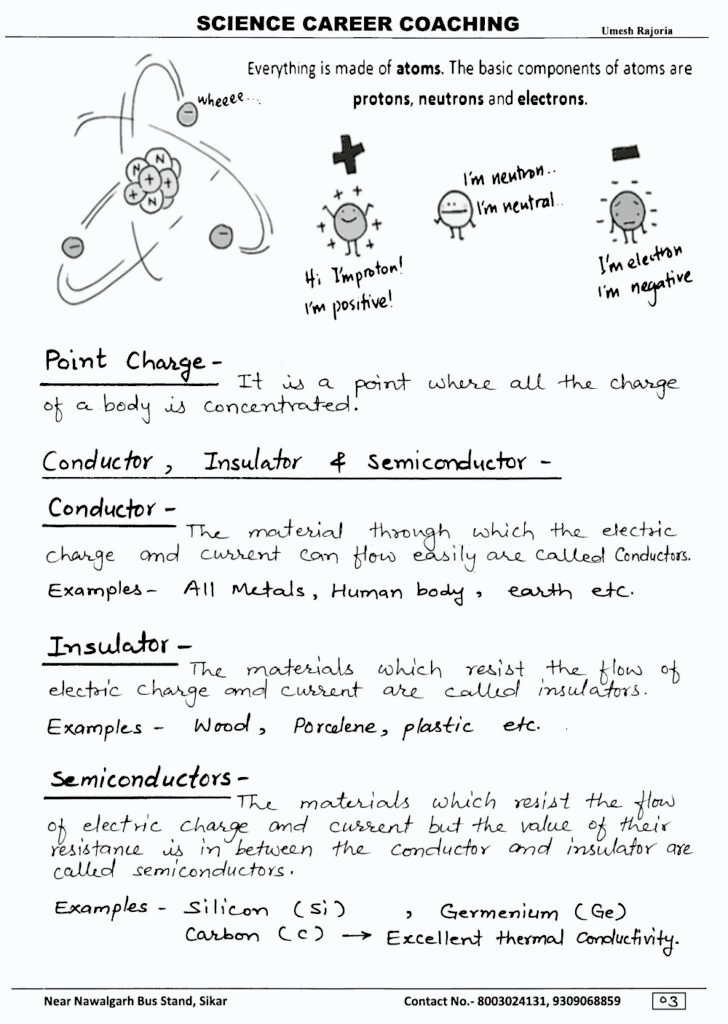 SCIENCE CAREER COACHING
Umesh Rajoria
Everything is made of atoms. The basic components of atoms are
protons, neutrons and electrons.
wheeee...
−
N
N
+
+
+
N
−
−
+
−
I'm neutron..
I'm neutral..
Hi I'm proton!
I'm positive!
I'm electron
I'm negative
Point Charge -
It is a point where all the charge
of a body is concentrated.
Conductor, Insulator & Semiconductor -
Conductor -
The material through which the electric
charge and current can flow easily are called Conductors.
Examples - All Metals, Human body, earth etc.
Insulator -
The materials which resist the flow of
electric charge and current are called insulators.
Examples - Wood, Porcelene, plastic etc.
Semiconductors -
The materials which resist the flow
of electric charge and current but the value of their
resistance is in between the conductor and insulator are
called semiconductors.
Examples - Silicon (Si) , Germenium (Ge)
Carbon (C) → Excellent thermal Conductivity.
Near Nawalgarh Bus Stand, Sikar
Contact No.- 8003024131, 9309068859
03